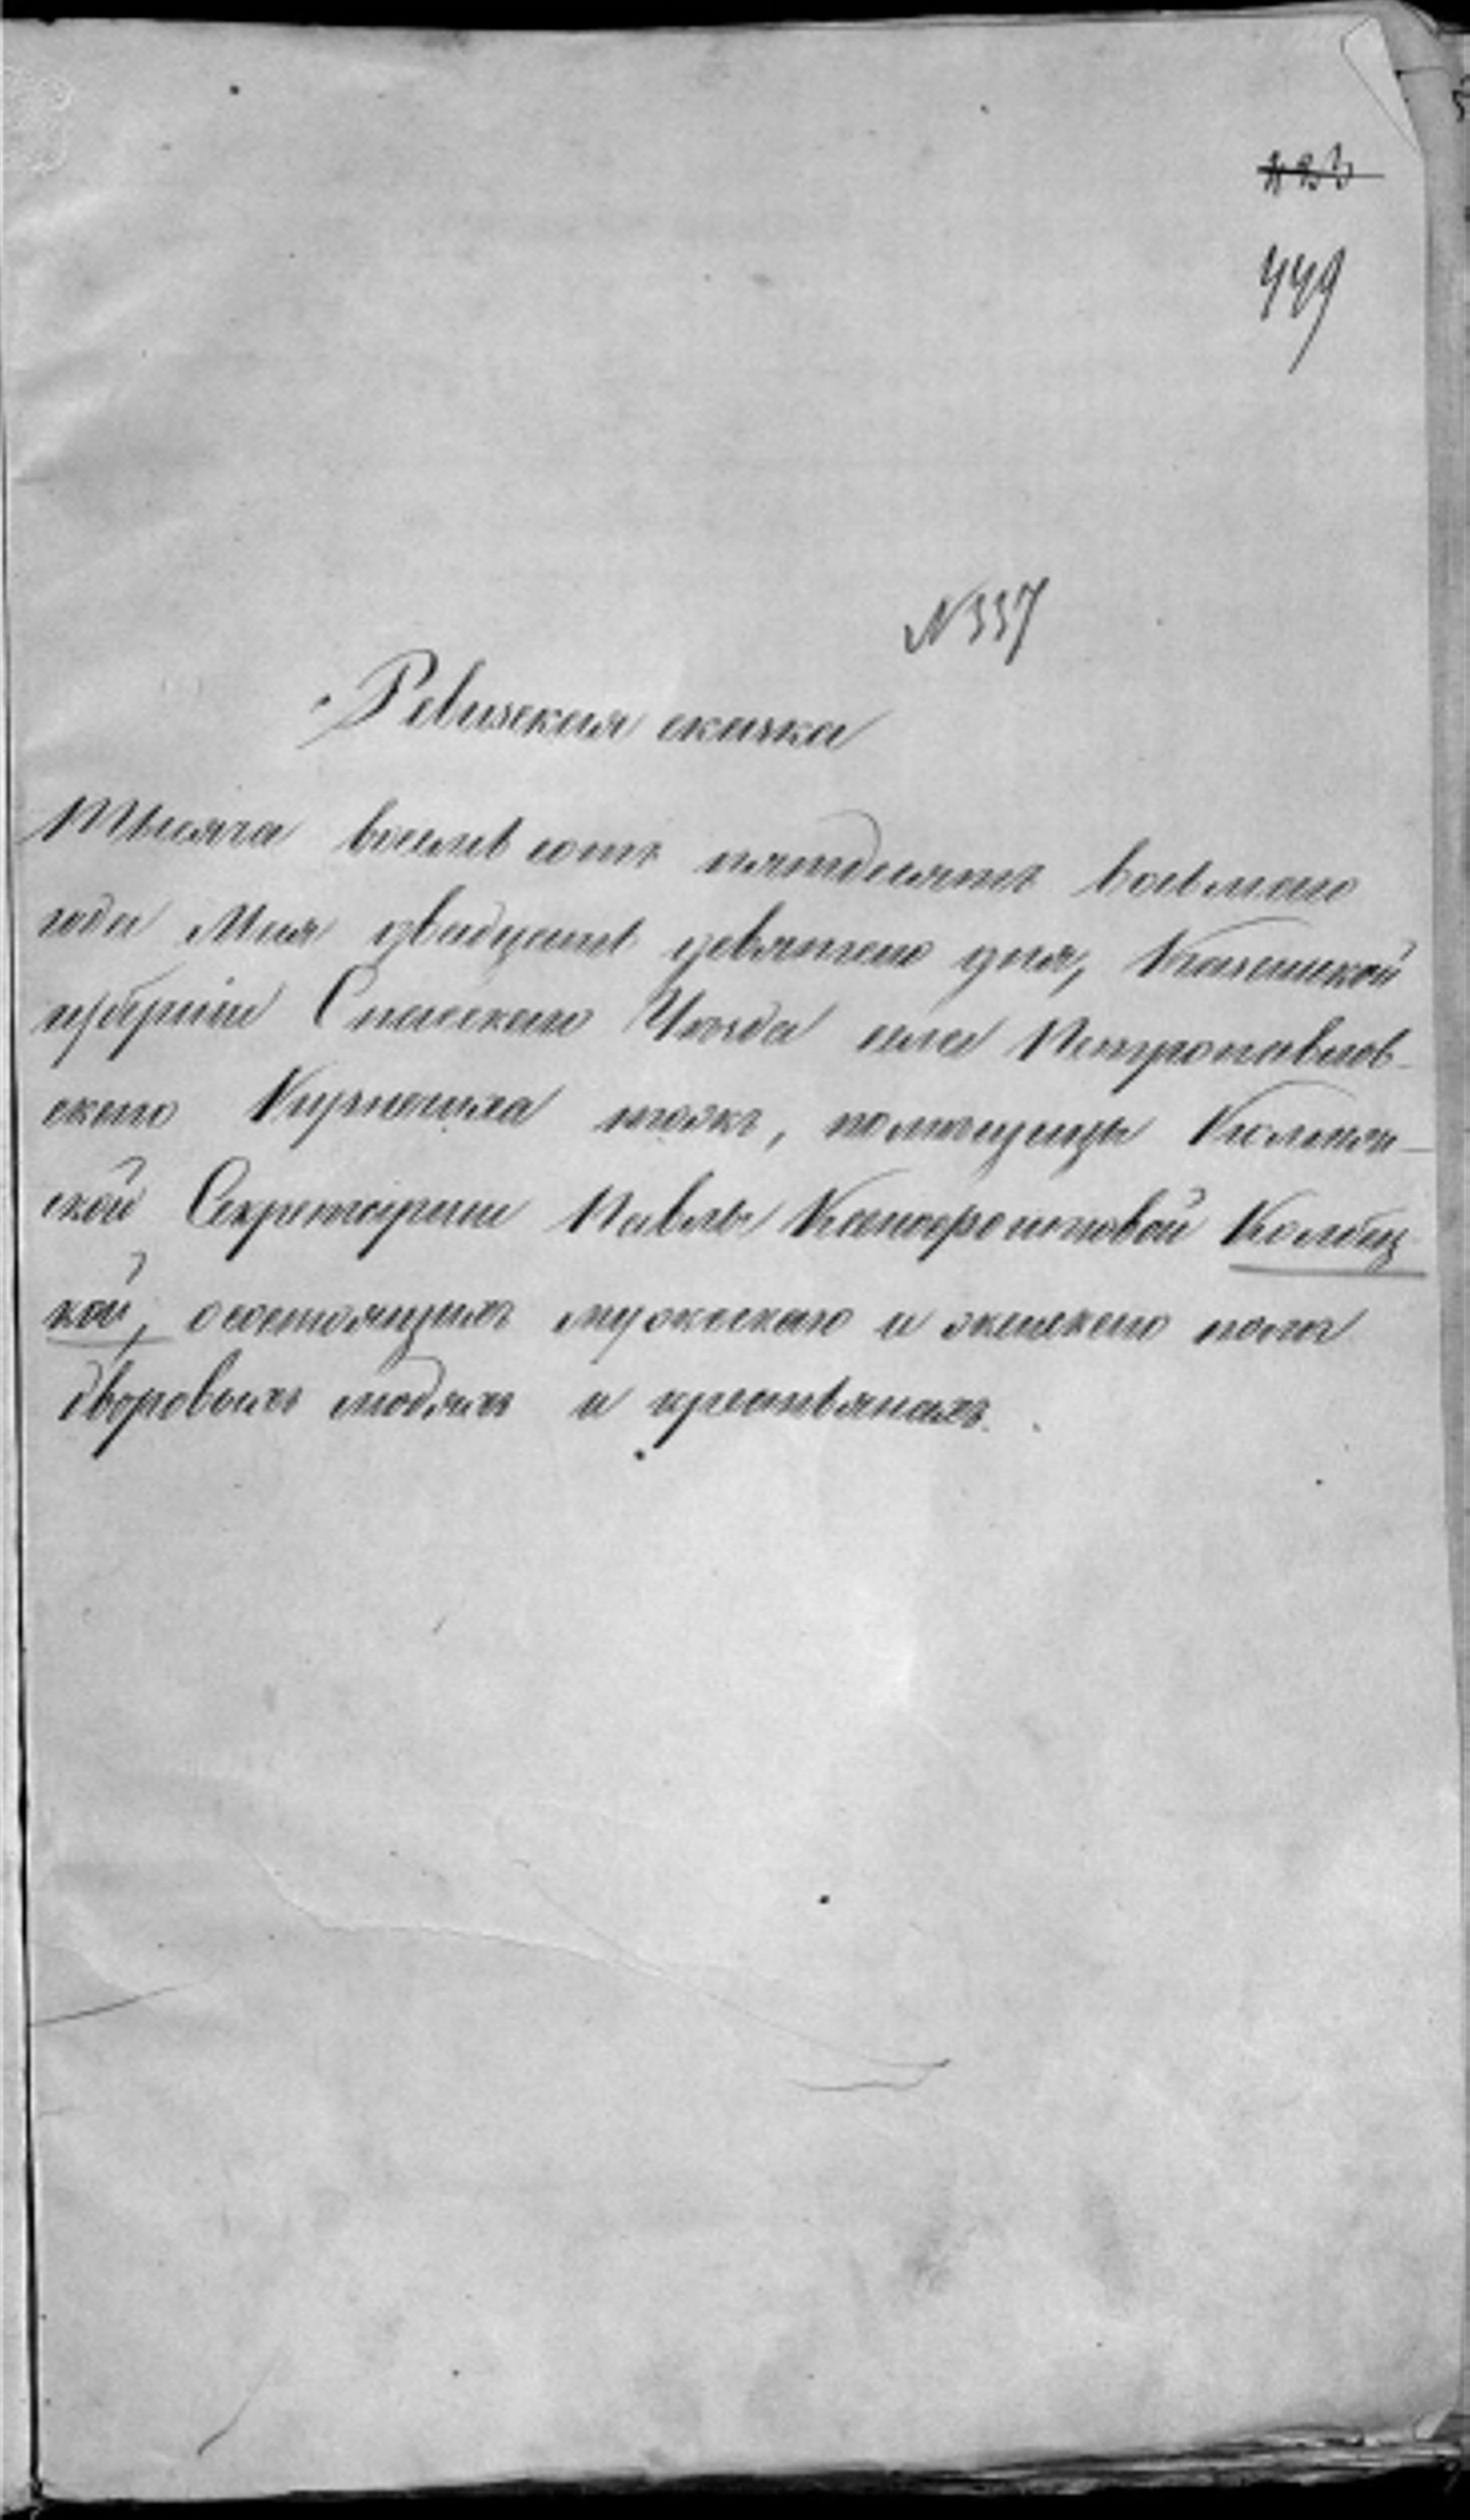 449
N 337
Ревизская сказка
Тысяча восемь сотъ пятдесятъ восьмаго
года Мая двадцать девятаго дня, Казанской
губерніи Спасскаго Уѣзда села Петропавлов-
скаго тожъ, помѣщицы
ской Секретарши Ксенофонтовой
кой, о состоящихъ мужескаго и женскаго пола
дворовыхъ людяхъ и крестьянахъ.